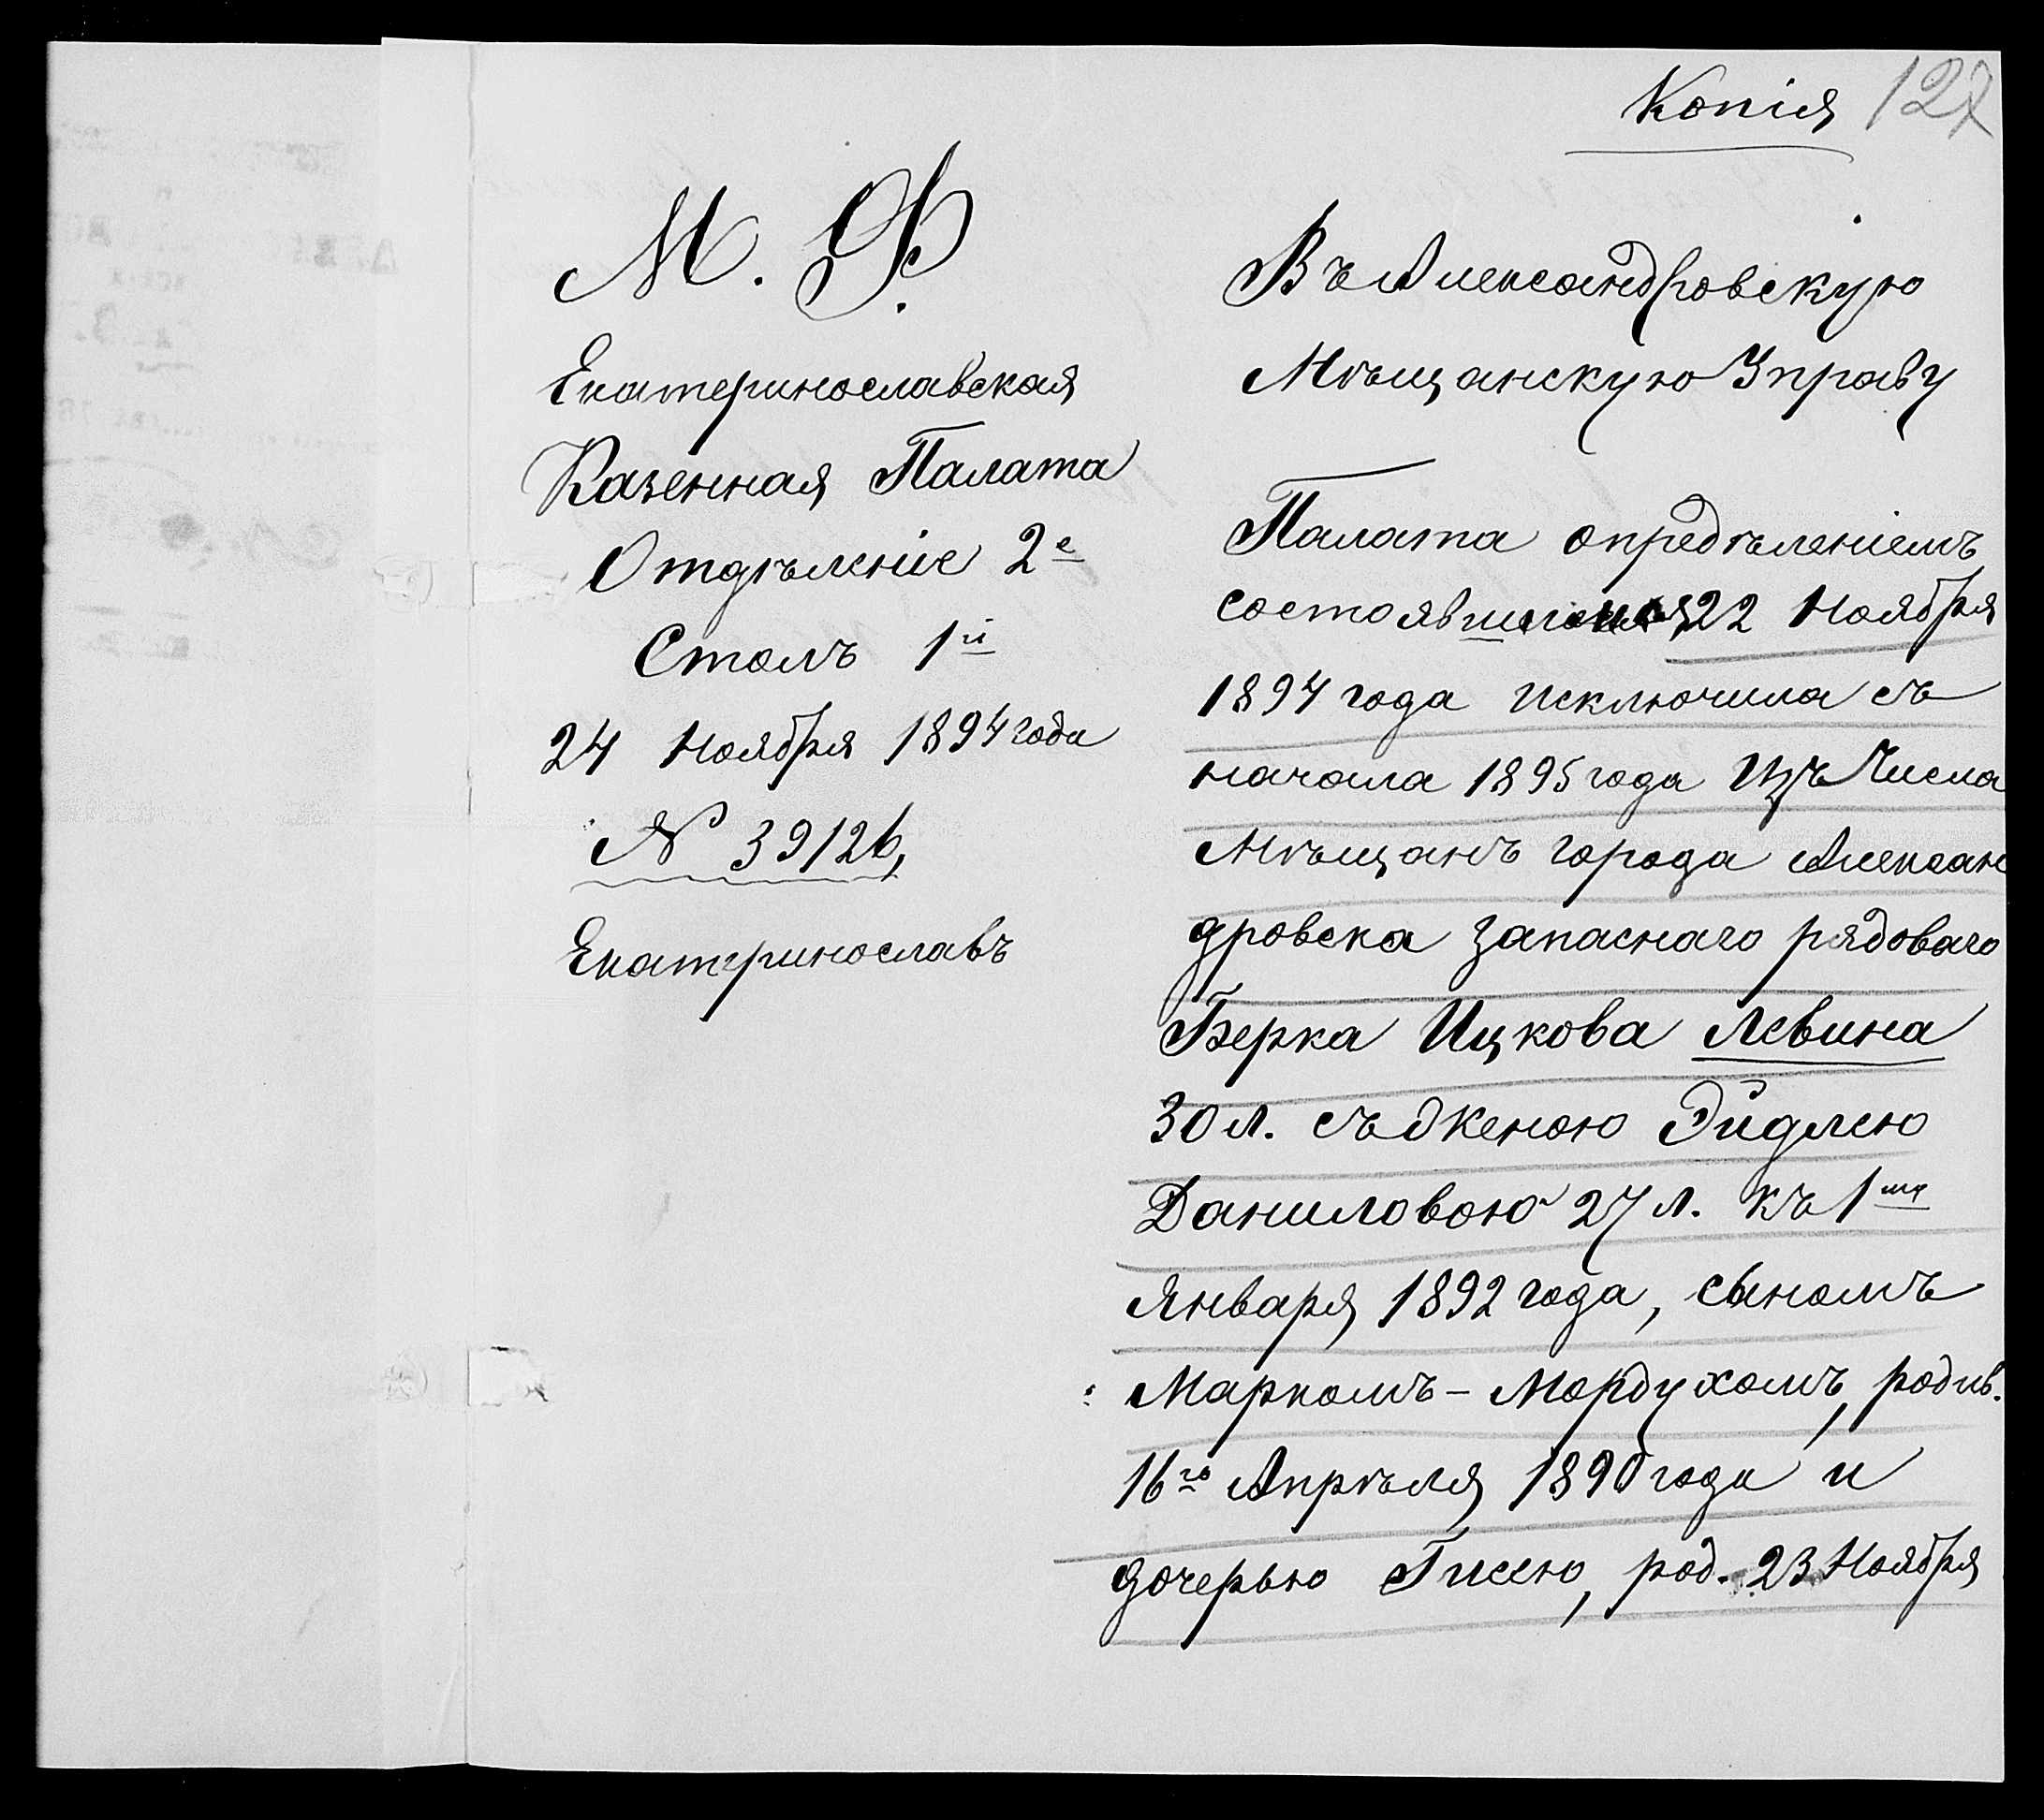 Копія 127
М. Ф.
Екатеринославская
Казенная Палата
Отдѣленіе 2е
Столъ 1й
24 Ноября 1894 года
№ 39126,
Екатеринославъ
Въ Александровскую
Мѣщанскую Управу
Палата опредѣленіемъ
22 Ноября
1894 года исключила съ
начала 1895 года изъ Числа
Мѣщанъ города Алексан
дровска запаснаго рядоваго
Берка Ицкова Левина
30 л. съ женою Эйдлею
Даниловою 27 л. къ 1му
Января 1892 года, сыномъ
Маркомъ - Мордухомъ, родив.
16го Апрѣля 1890 года и
дочерью Гисею, род. 23 Ноября